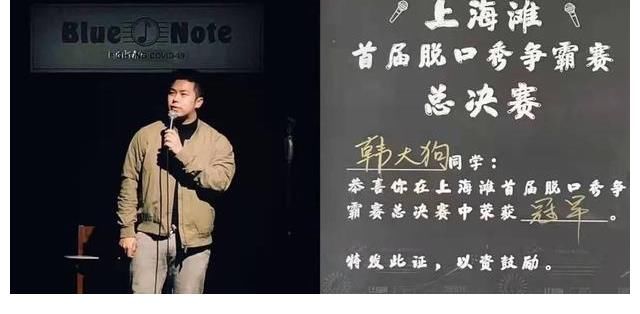 Blue Note
上海滩
首届脱口秀争霸赛
总决赛
韩大狗同学：
恭喜你在上海滩首届脱口秀争
霸赛总决赛中荣获冠军。
特发此证，以资鼓励。